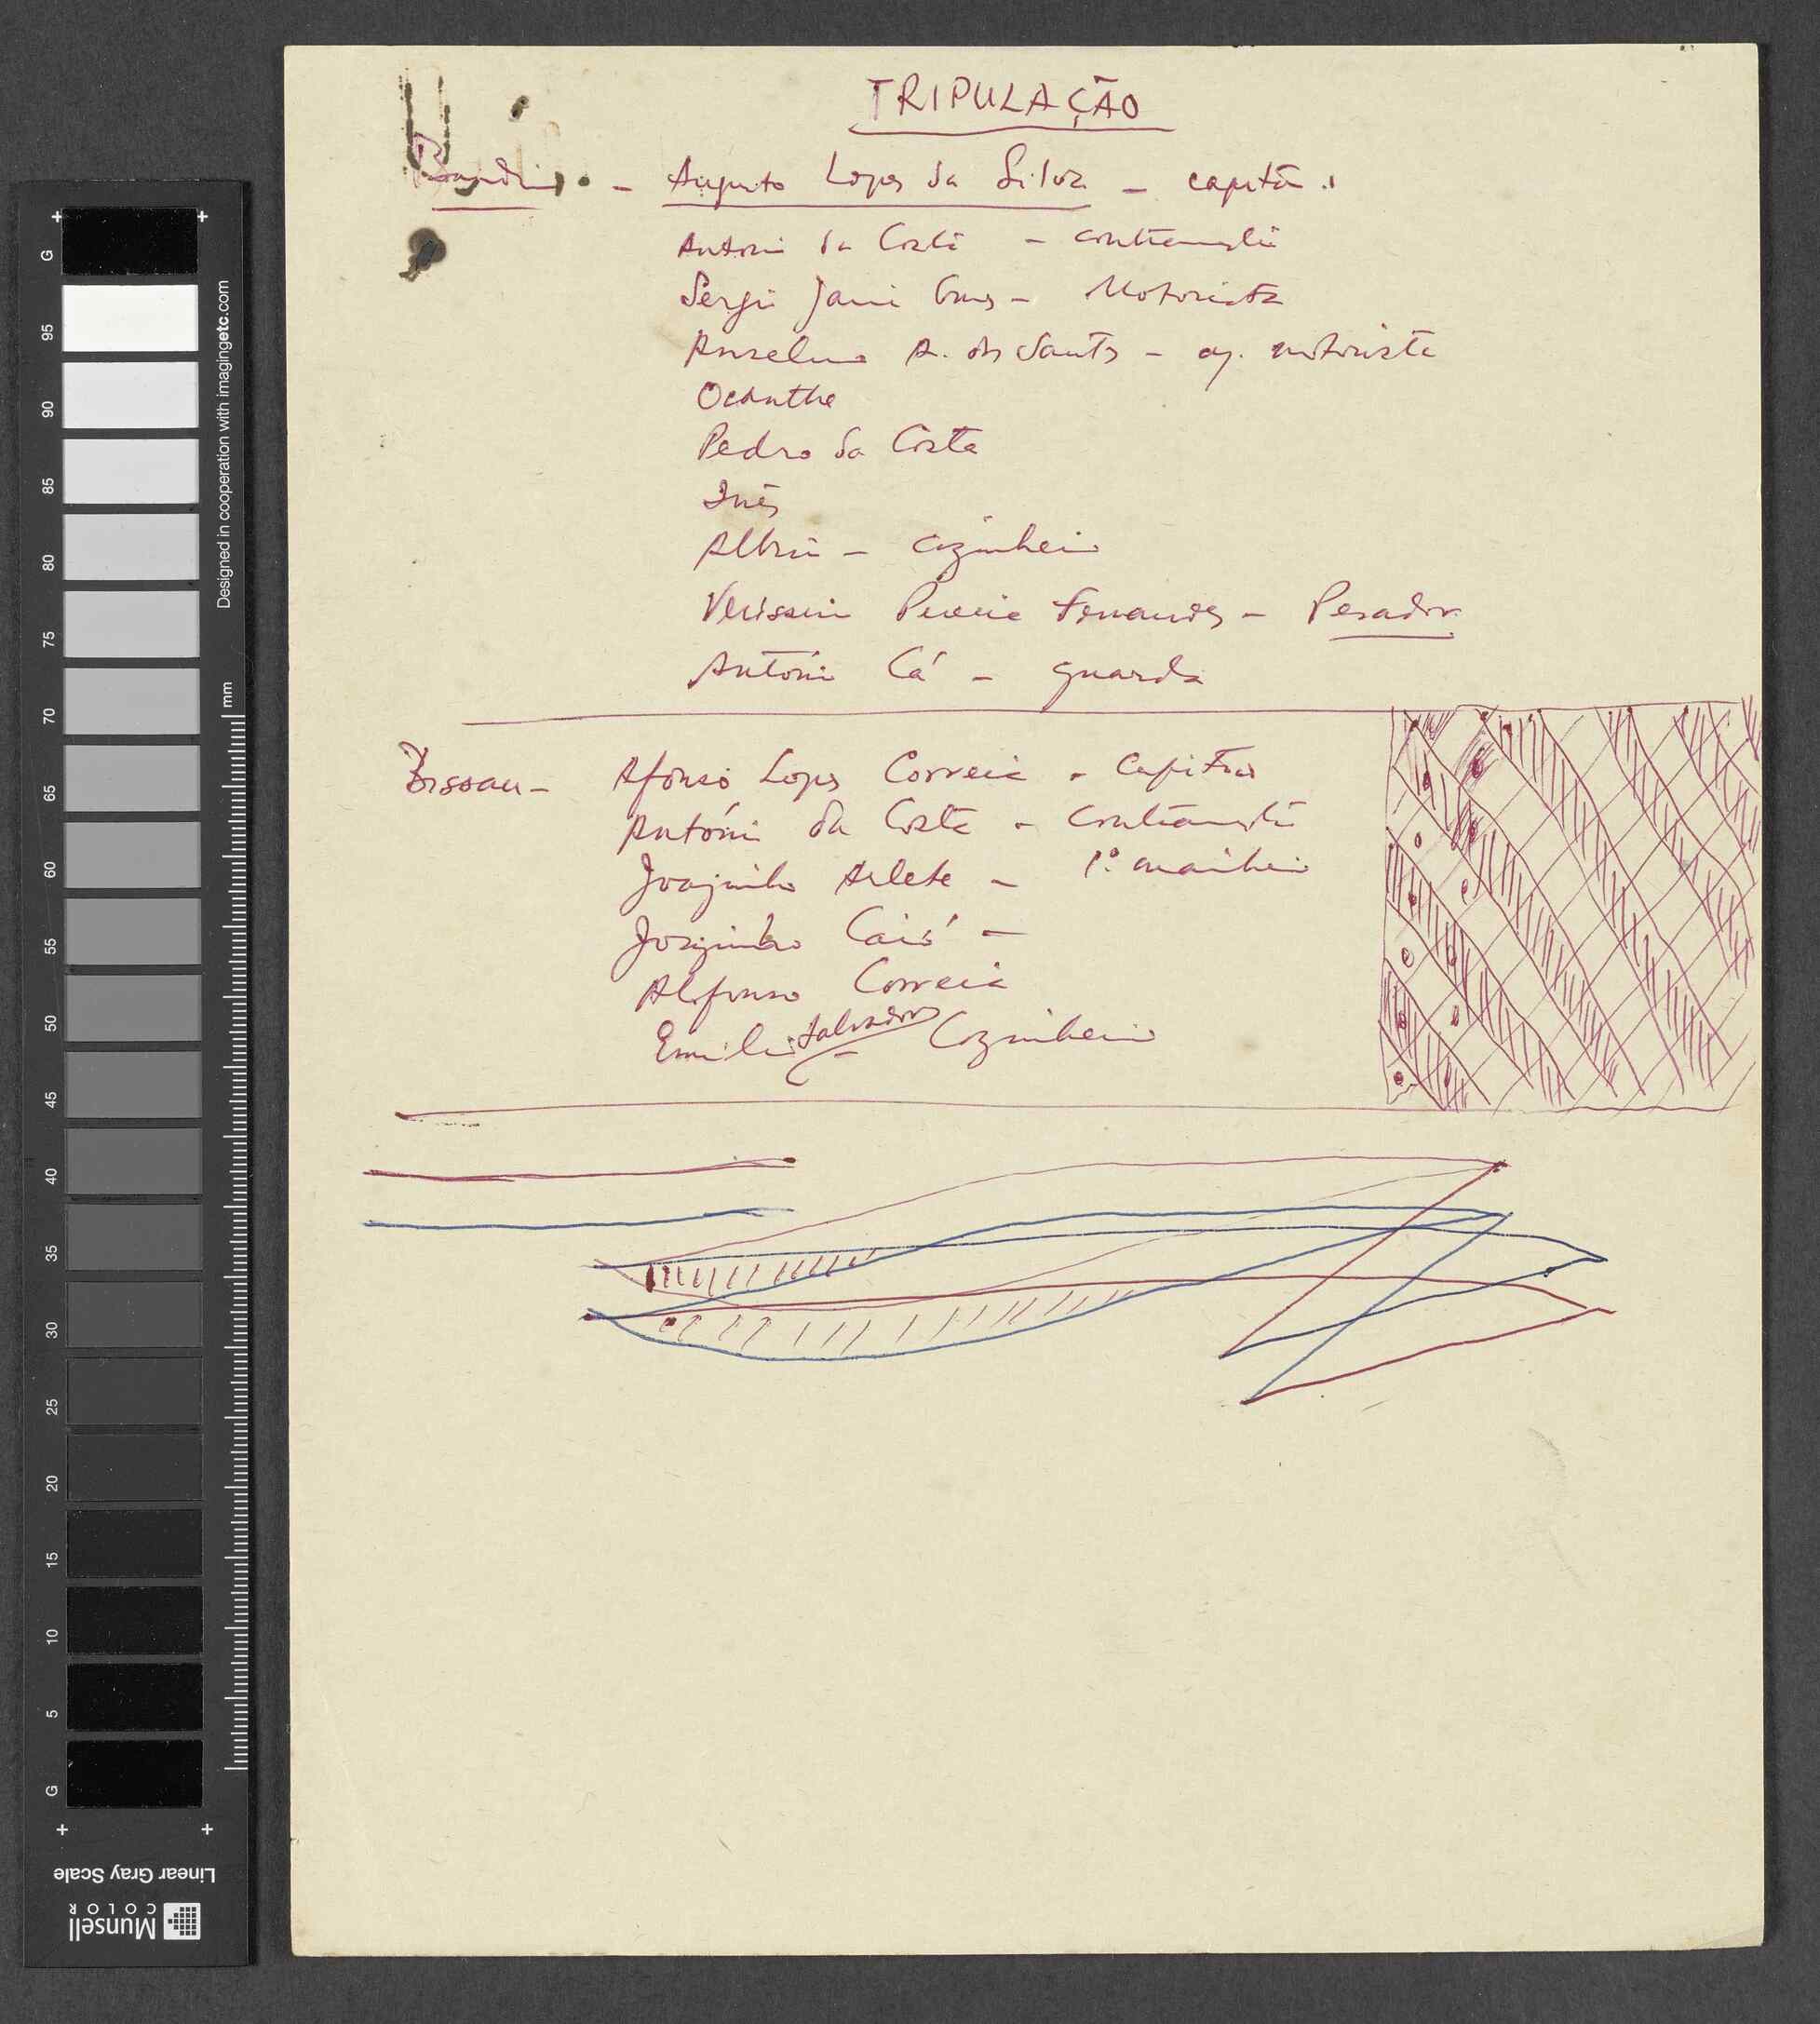 TRIPULAÇÃO
Bandim - Augusto Lopes da Silva - capitão
António da Costa - contramestre
Sergio - Motorista
Anselmo A. dos Santos - aj. motorista
Ocanthe
Pedro da Costa
Inês
Albino - cozinheiro
Verissimo Pereira Fernandes - Pesador
António Cá - guarda
Bissau - Afonso Lopes Correia - Capitão
António da Costa - Contramestre
Joaquinho Arlete - 1º marinheiro
Joaquinho Caió -
Alfonso Correia
Emilio Salvador - Cozinheiro
G
95
90
85
80
75
70
65
60
55
50
45
40
35
30
25
20
15
10
5
G
Designed in cooperation with imagingetc.com
mm
Linear Gray Scale
Munsell
COLOR